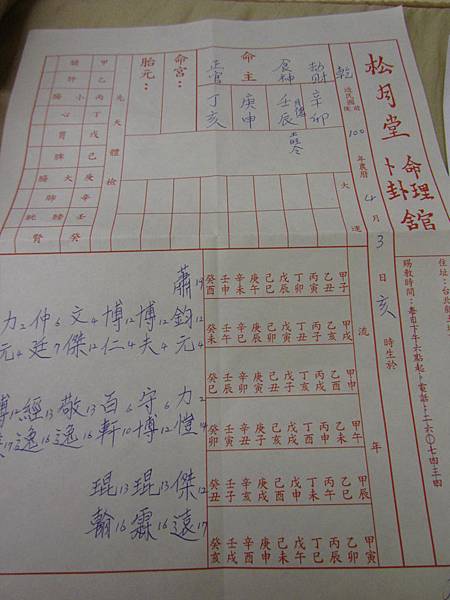 住址：台北
賜教時間：每日下午六點起．電話：二六〇七四三四
松月堂
命理
卜卦
舘
乾 造民國 100 年農曆 4 月 3 日 亥 時生於
劫財 辛卯
食神 壬辰 月德
土旺令
命主 庚申
正官 丁亥
大運
命宮：
胎元：
先天體檢
甲乙丙丁戊己庚辛壬癸
膽肝小腸心胃脾大腸肺膀胱腎
流年
甲子 乙丑 丙寅 丁卯 戊辰 己巳 庚午 辛未 壬申 癸酉
甲戌 乙亥 丙子 丁丑 戊寅 己卯 庚辰 辛巳 壬午 癸未
甲申 乙酉 丙戌 丁亥 戊子 己丑 庚寅 辛卯 壬辰 癸巳
甲午 乙未 丙申 丁酉 戊戌 己亥 庚子 辛丑 壬寅 癸卯
甲辰 乙巳 丙午 丁未 戊申 己酉 庚戌 辛亥 壬子 癸丑
甲寅 乙卯 丙辰 丁巳 戊午 己未 庚申 辛酉 壬戌 癸亥
蕭19
鈞12元4
博12夫4
博12仁4
文4傑12
仲6廷7
力2元4
力2愷
守6博12
百6軒
敬13逸16
經13逸16
博12
傑12遠17
琨13霖16
琨13翰16